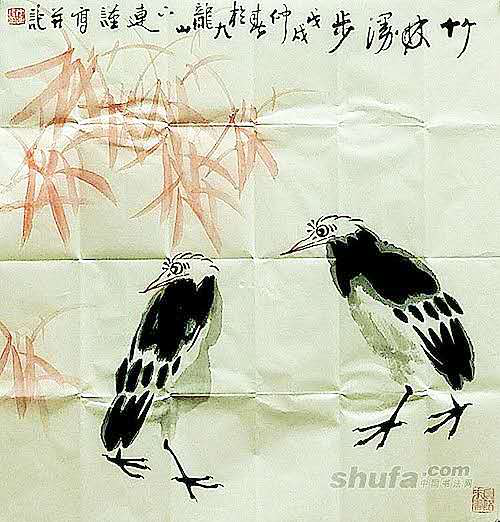 竹林漫步 戊戌仲春於九龍山小連謹寫并記
shufa.com
中国书法网